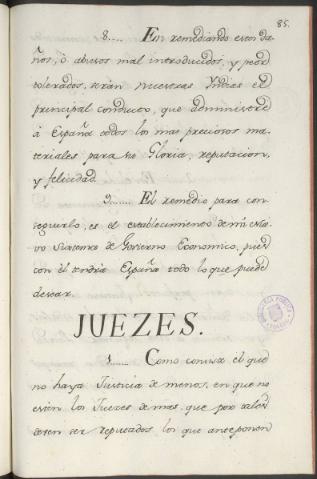 85.
8..... En remediando estos da-
ños, ò abusos mal introducidos, y peor
tolerados, seràn nuestras Yndias el
principal conducto, que administre
à España todos los mas preciosos ma-
teriales para su Gloria, reputacion,
y felicidad.
9...... El remedio para con-
seguirlo, es el establecimiento de mi nue-
vo Systema de Govierno Economico, pues
con èl tendrà España todo lo que puede
desear.
JUEZES.
1..... Como consta el que
no haya Justicia de menos, en que no
estèn los Juezes de mas, que por tales
deven ser reputados los que anteponen